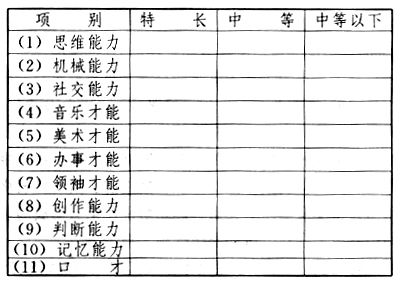 项 别 特 长 中 等 中等以下
(1) 思维能力
(2) 机械能力
(3) 社交能力
(4) 音乐才能
(5) 美术才能
(6) 办事才能
(7) 领袖才能
(8) 创作能力
(9) 判断能力
(10) 记忆能力
(11) 口 才